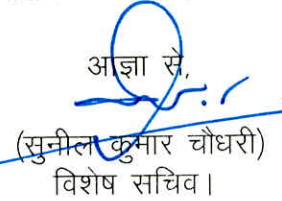 आज्ञा से,
(सुनील कुमार चौधरी)
विशेष सचिव।